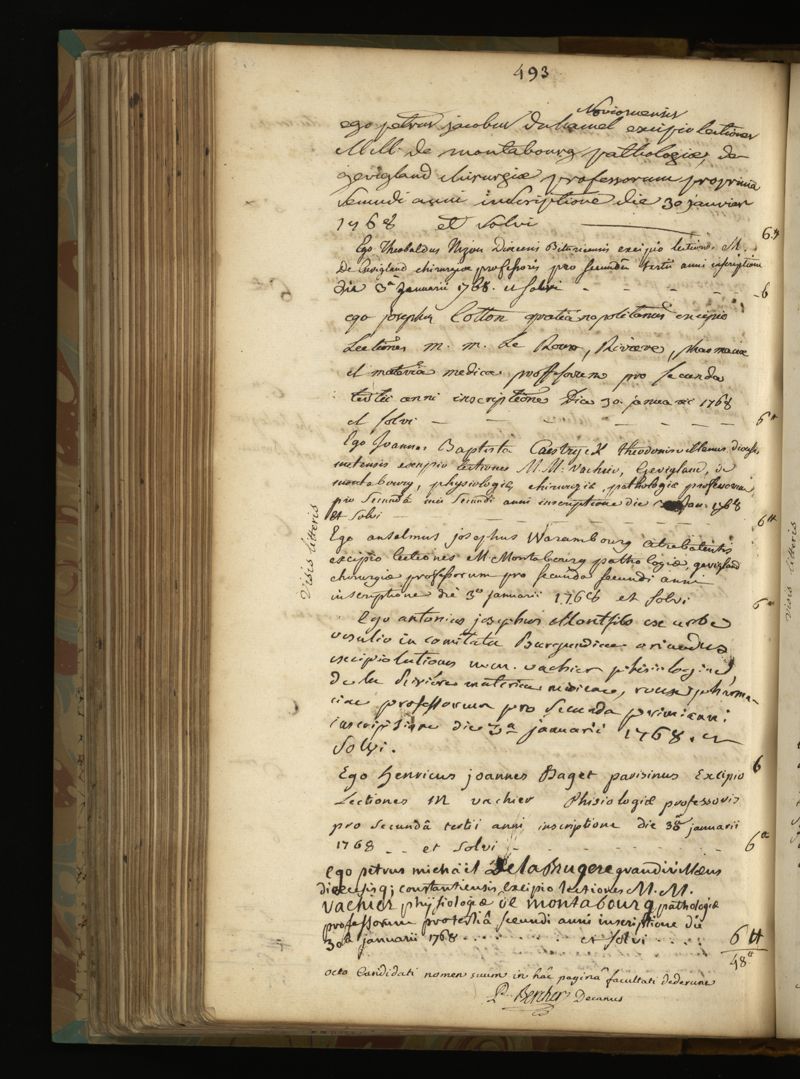 493
Noviomensis
ego petrus jacobus Duhamel excipio lectiones
MM. de montabourg pathologiæ, de
gevigland chirurgiæ professorum pro prima
secundi anni inscriptione die 30 janvier
1768 et solvi 6.tt
Ego Theobaldus Nizon Diœcesis Bituricensis excipio lectiones M.
De Gevigland chirurgiæ professoris pro secundâ tertii anni inscriptione
die 3a Januarii 1768. et solvi - - - - - 6
ego josephus Cotton excipio
Lectiones m. m. Le Roux, Riviere, pharmaciæ
et materiæ medicæ proffessorum pro secunda
tertii anni inscriptione Die 30. januarii 1768
et solvi - - - - - - 6tt
Ego Joannes Baptista theodonisvillanus diœcesis
metensis excipio lectiones M.M. Vachier, Gevigland, de
montabourg, physiologiæ, chirurgiæ, pathologiæ professorum
pro secundâ mei secundi anni inscriptione die Jan. 1768
et solvi 6tt
Visis litteris
Ego anselmus josephus Warambourg atrebatensis
excipio lectiones MM. Montabourg pathologiæ, gevigland
chirurgiæ professorum pro secunda secundi anni
inscriptione die 30 januarii 1768 et solvi 6tt
Ego antonius josephus ex urbe
vesulio in comitatu Burgundiæ oriundus
excipio lectiones m.m. vachier phisiologiæ,
de la Rivière materiæ medicæ, roux pharma-
ciæ professorum pro secunda primi anni
inscriptione die 3a januarii 1768. et
Solvi. 6
Ego Henricus joannes Baget parisinus Excipio
Lectiones M vachier Phisiologiæ professoris
pro secundâ tertii anni inscriptione die 30a januarii
1768 - - et solvi - - - - - 6tt
Ego petrus michaël Delabrugere grandivillæus
diœcesisq; constantiensis Excipio lectiones M.M.
vachier physiologiæ de montabourg pathologiæ
professorum pro tertiâ secundi anni inscriptione die
30a januarii 1768 . . . . . . et solvi . . . . 6tt
48tt
octo Candidati nomen suum in hâc paginâ facultati dederunt
P. Bercher Decanus
visis litteris